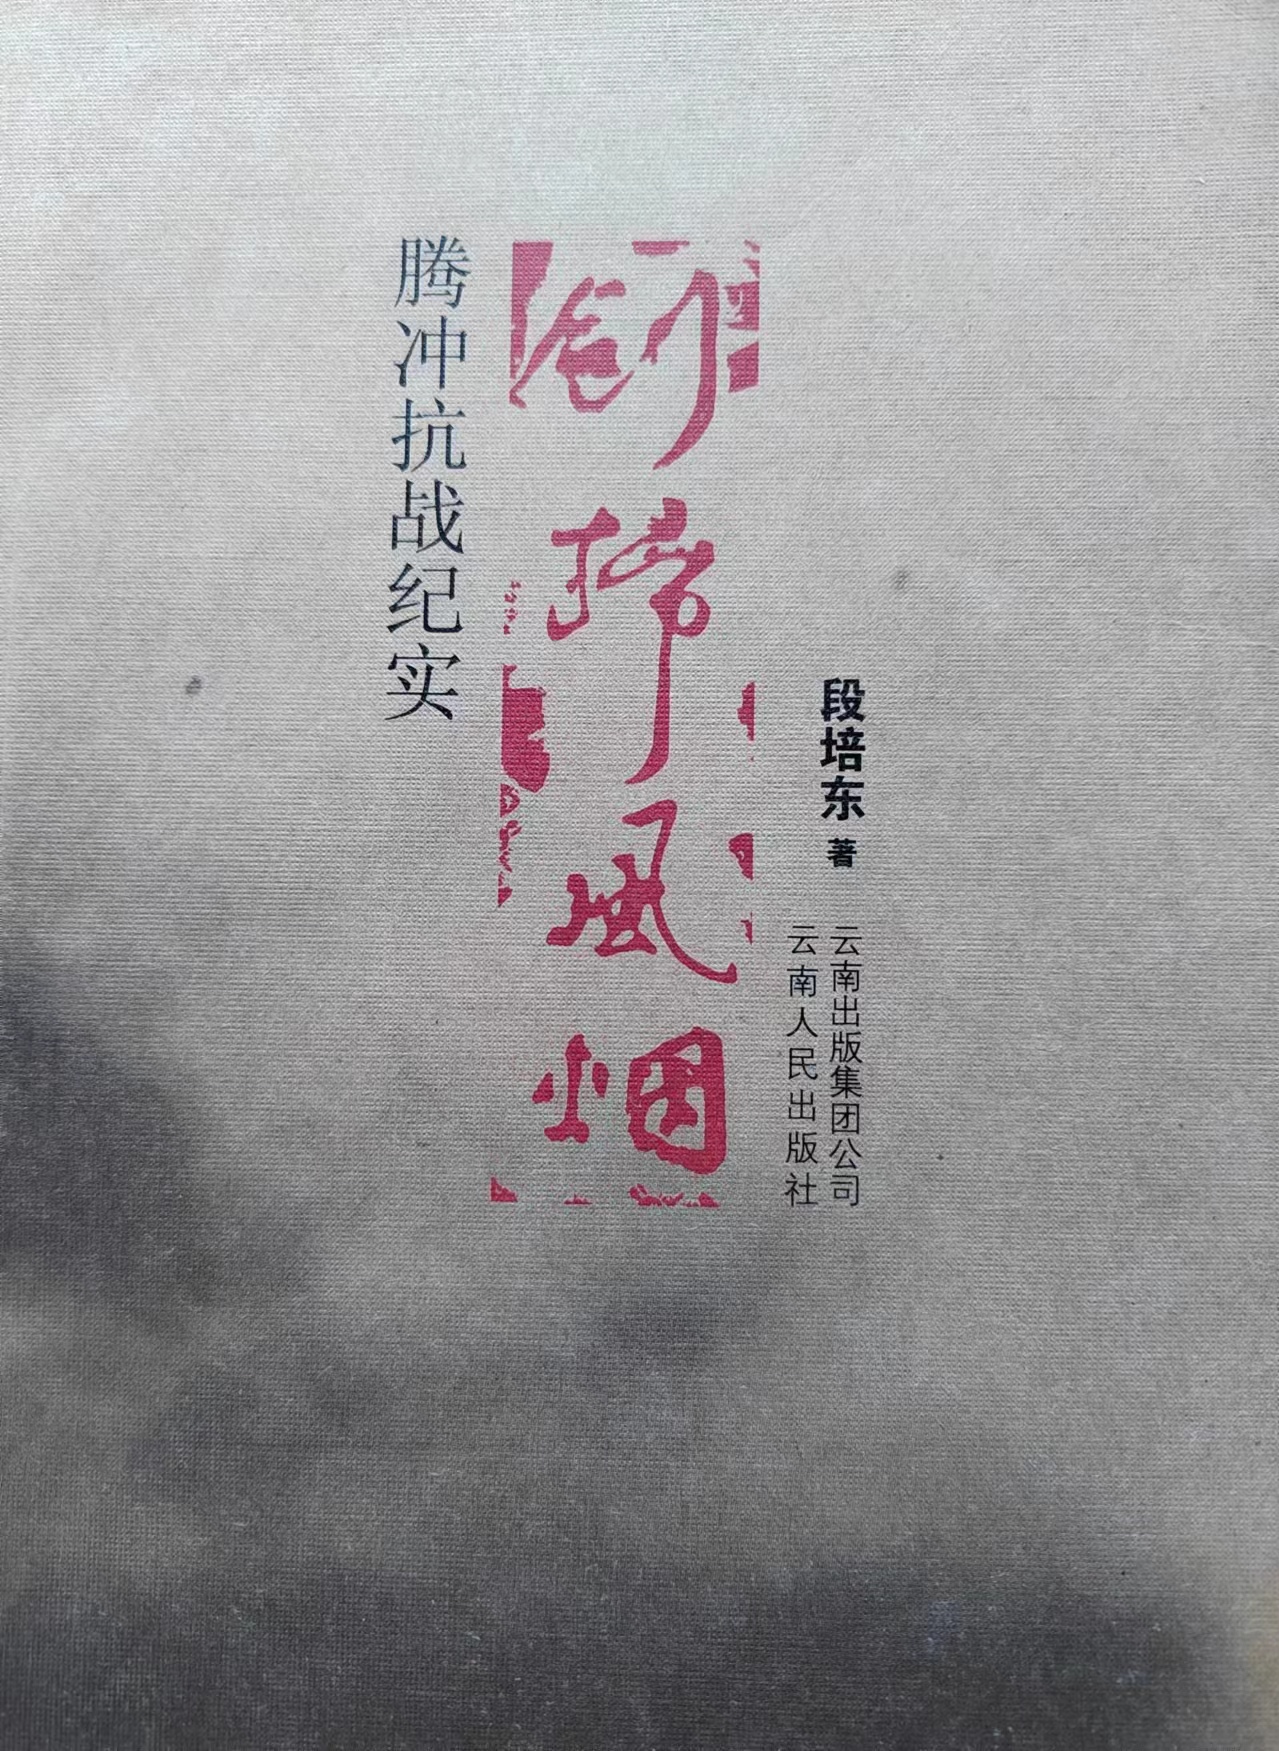 剑扫风烟
腾冲抗战纪实
段培东 著
云南出版集团公司
云南人民出版社